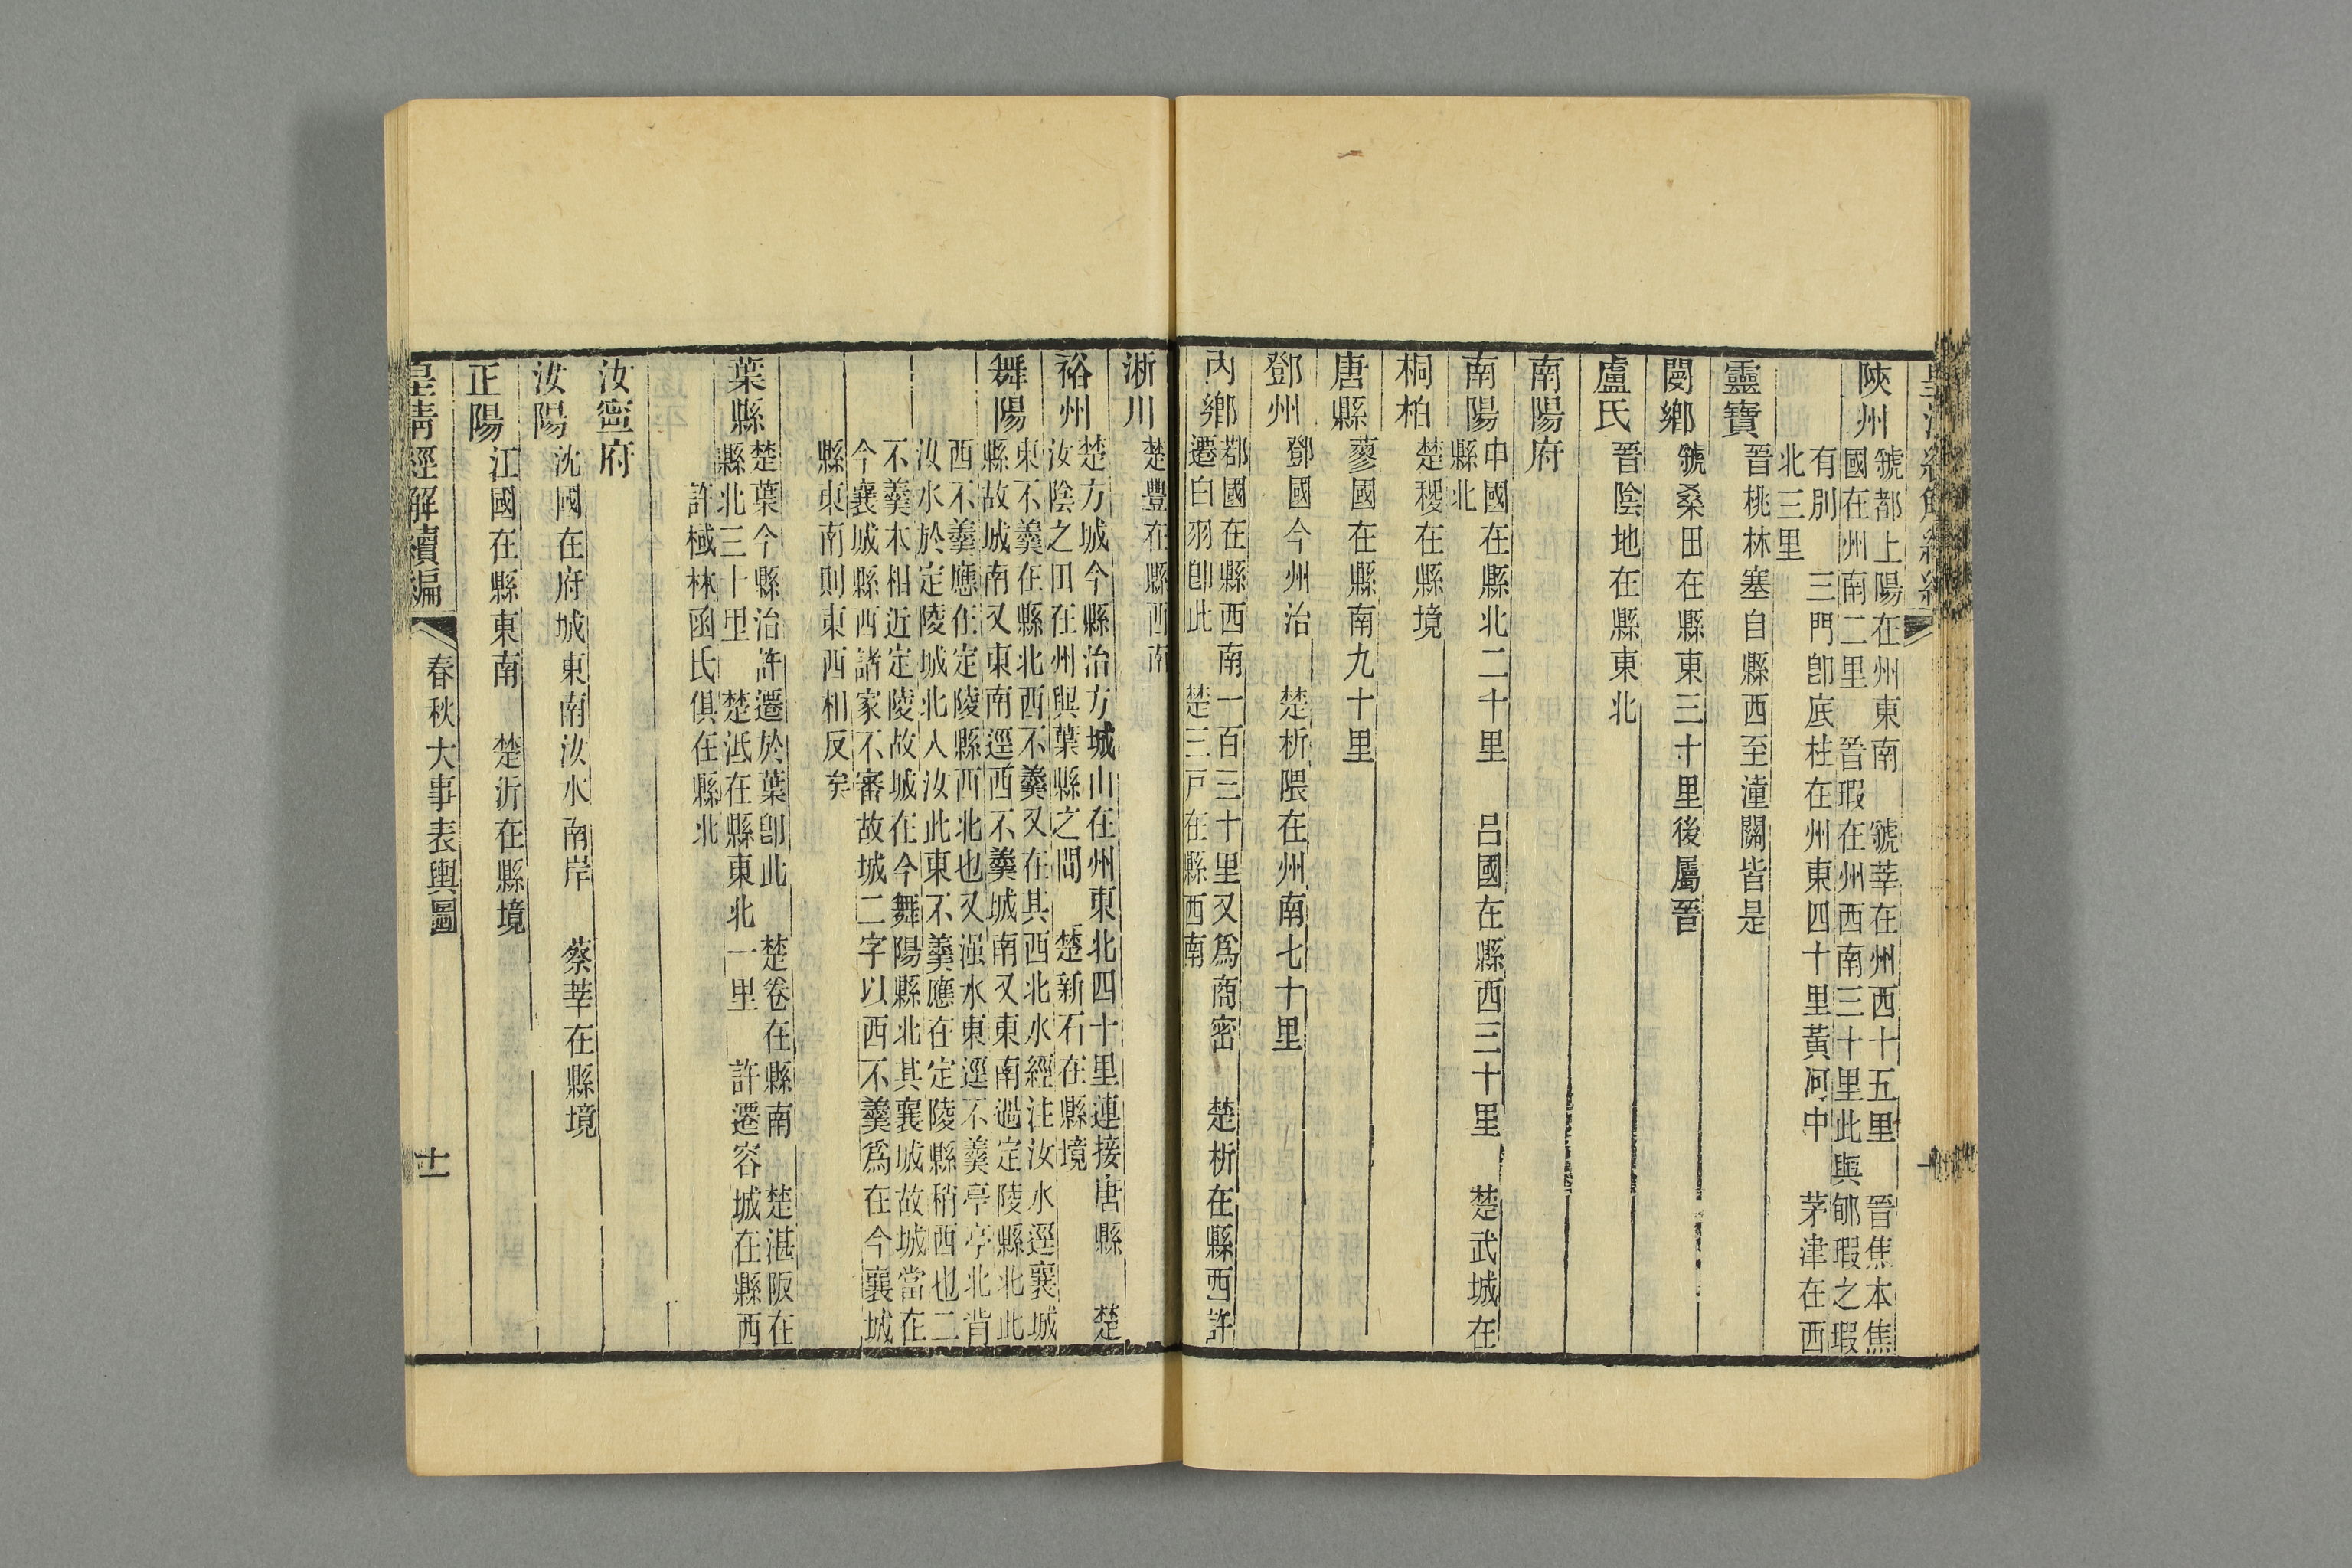 陝州 虢都上陽在州東南　虢莘在州西十五里　晉焦本焦
國在州南二里　晉瑕在州西南三十里此與郇瑕之瑕
有別　三門卽底柱在州東四十里黃河中　茅津在西
北三里
靈寶 晉桃林塞自縣西至潼關皆是
閿鄉 虢桑田在縣東三十里後屬晉
盧氏 晉陰地在縣東北
南陽府
南陽 申國在縣北二十里　呂國在縣西三十里　楚武城在
縣北
桐柏 楚稷在縣境
唐縣 蓼國在縣南九十里
鄧州 鄧國今州治　楚析隈在州南七十里
內鄉 鄀國在縣西南一百三十里又爲商密　楚析在縣西許
遷白羽卽此　楚三戸在縣西南
淅川 楚豐在縣西南
裕州 楚方城今縣治方城山在州東北四十里連接唐縣　楚
汝陰之田在州與葉縣之間　楚新石在縣境
舞陽 東不羹在縣北西不羹又在其西北水經注汝水逕襄城
縣故城南又東南逕西不羹城南又東南過定陵縣北此
西不羹應在定陵縣西北也又强水東逕不羹亭亭北背
汝水於定陵城北入汝此東不羹應在定陵縣稍西也二
不羹本相近定陵故城在今舞陽縣北其襄城故城當在
今襄城縣西諸家不審故城二字以西不羹爲在今襄城
縣東南則東西相反矣
葉縣 楚葉今縣治許遷於葉卽此　楚卷在縣南　楚湛阪在
縣北三十里　楚泜在縣東北一里　許遷容城在縣西
許棫林函氏俱在縣北
汝寧府
汝陽 沈國在府城東南汝水南岸　蔡莘在縣境
正陽 江國在縣東南　楚沂在縣境
皇淸經解續編 春秋大事表輿圖 十一